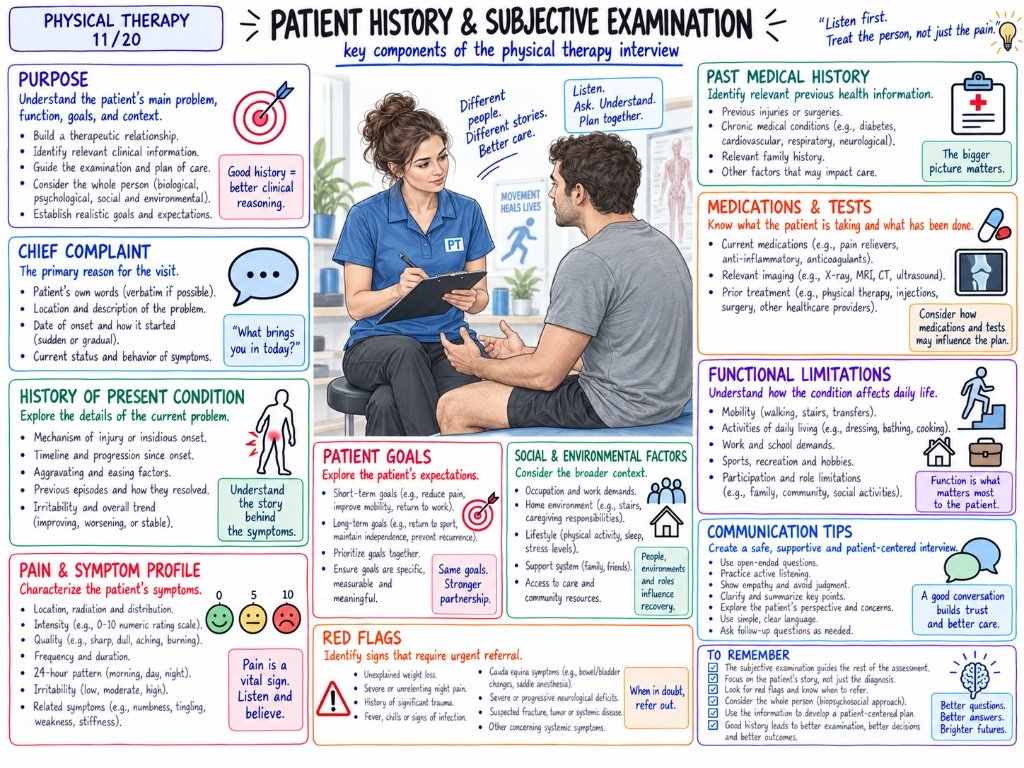 PHYSICAL THERAPY
11/20
PATIENT HISTORY & SUBJECTIVE EXAMINATION
key components of the physical therapy interview
"Listen first.
Treat the person, not just the pain."
PURPOSE
Understand the patient's main problem,
function, goals, and context.
• Build a therapeutic relationship.
• Identify relevant clinical information.
• Guide the examination and plan of care.
• Consider the whole person (biological,
psychological, social and environmental).
• Establish realistic goals and expectations.
Good history =
better clinical
reasoning.
CHIEF COMPLAINT
The primary reason for the visit.
• Patient's own words (verbatim if possible).
• Location and description of the problem.
• Date of onset and how it started
(sudden or gradual).
• Current status and behavior of symptoms.
"What brings
you in today?"
HISTORY OF PRESENT CONDITION
Explore the details of the current problem.
• Mechanism of injury or insidious onset.
• Timeline and progression since onset.
• Aggravating and easing factors.
• Previous episodes and how they resolved.
• Irritability and overall trend
(improving, worsening, or stable).
Understand
the story
behind
the symptoms.
PAIN & SYMPTOM PROFILE
Characterize the patient's symptoms.
• Location, radiation and distribution.
• Intensity (e.g., 0-10 numeric rating scale).
• Quality (e.g., sharp, dull, aching, burning).
• Frequency and duration.
• 24-hour pattern (morning, day, night).
• Irritability (low, moderate, high).
• Related symptoms (e.g., numbness, tingling,
weakness, stiffness).
0 5 10
Pain is a
vital sign.
Listen and
believe.
Different
people.
Different stories.
Better care.
Listen.
Ask. Understand.
Plan together.
MOVEMENT
HEALS LIVES
PT
PATIENT GOALS
Explore the patient's expectations.
• Short-term goals (e.g., reduce pain,
improve mobility, return to work).
• Long-term goals (e.g., return to sport,
maintain independence, prevent recurrence).
• Prioritize goals together.
• Ensure goals are specific,
measurable and
meaningful.
Same goals.
Stronger
partnership.
SOCIAL & ENVIRONMENTAL FACTORS
Consider the broader context.
• Occupation and work demands.
• Home environment (e.g., stairs,
caregiving responsibilities).
• Lifestyle (physical activity, sleep,
stress levels).
• Support system (family, friends).
• Access to care and
community resources.
People,
environments
and roles
influence
recovery.
RED FLAGS
Identify signs that require urgent referral.
• Unexplained weight loss.
• Severe or unrelenting night pain.
• History of significant trauma.
• Fever, chills or signs of infection.
• Cauda equina symptoms (e.g., bowel/bladder
changes, saddle anesthesia).
• Severe or progressive neurological deficits.
• Suspected fracture, tumor or systemic disease.
• Other concerning systemic symptoms.
When in doubt,
refer out.
PAST MEDICAL HISTORY
Identify relevant previous health information.
• Previous injuries or surgeries.
• Chronic medical conditions (e.g., diabetes,
cardiovascular, respiratory, neurological).
• Relevant family history.
• Other factors that may impact care.
The bigger
picture matters.
MEDICATIONS & TESTS
Know what the patient is taking and what has been done.
• Current medications (e.g., pain relievers,
anti-inflammatory, anticoagulants).
• Relevant imaging (e.g., X-ray, MRI, CT, ultrasound).
• Prior treatment (e.g., physical therapy, injections,
surgery, other healthcare providers).
Consider how
medications and tests
may influence the plan.
FUNCTIONAL LIMITATIONS
Understand how the condition affects daily life.
• Mobility (walking, stairs, transfers).
• Activities of daily living (e.g., dressing, bathing, cooking).
• Work and school demands.
• Sports, recreation and hobbies.
• Participation and role limitations
(e.g., family, community, social activities).
Function is what
matters most
to the patient.
COMMUNICATION TIPS
Create a safe, supportive and patient-centered interview.
• Use open-ended questions.
• Practice active listening.
• Show empathy and avoid judgment.
• Clarify and summarize key points.
• Explore the patient's perspective and concerns.
• Use simple, clear language.
• Ask follow-up questions as needed.
A good conversation
builds trust
and better care.
TO REMEMBER
☑ The subjective examination guides the rest of the assessment.
☑ Focus on the patient's story, not just the diagnosis.
☑ Look for red flags and know when to refer.
☑ Consider the whole person (biopsychosocial approach).
☑ Use the information to develop a patient-centered plan.
☑ Good history leads to better examination, better decisions
and better outcomes.
Better questions.
Better answers.
Brighter futures.